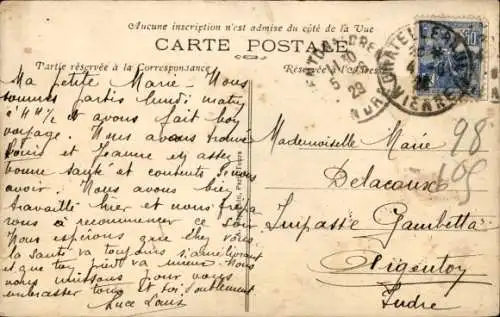 Aucune inscription n'est admise du côté de la Vue
CARTE POSTALE
Partie réservée à la Correspondance
Réservée à l'adresse
Ma petite Marie. Nous
sommes partis lundi matin
et avons fait bon
voyage. Nous avons trouvé
Louis et Jeanne en assez
bonne santé et contents de nous
avoir. Nous avons bien
travaillé hier et nous
à recommencer ce soir.
Nous espérons que chez vous
la santé va toujours s'améliorant
et que ton pied va mieux. Nous
nous unissons pour vous
embrasser tous et toi doublement
Luce
Mademoiselle Marie
Delacaux
Impasse Gambetta
Argenton
Indre
98
105
CHATELLERAULT
VIENNE
INDRE
5
23